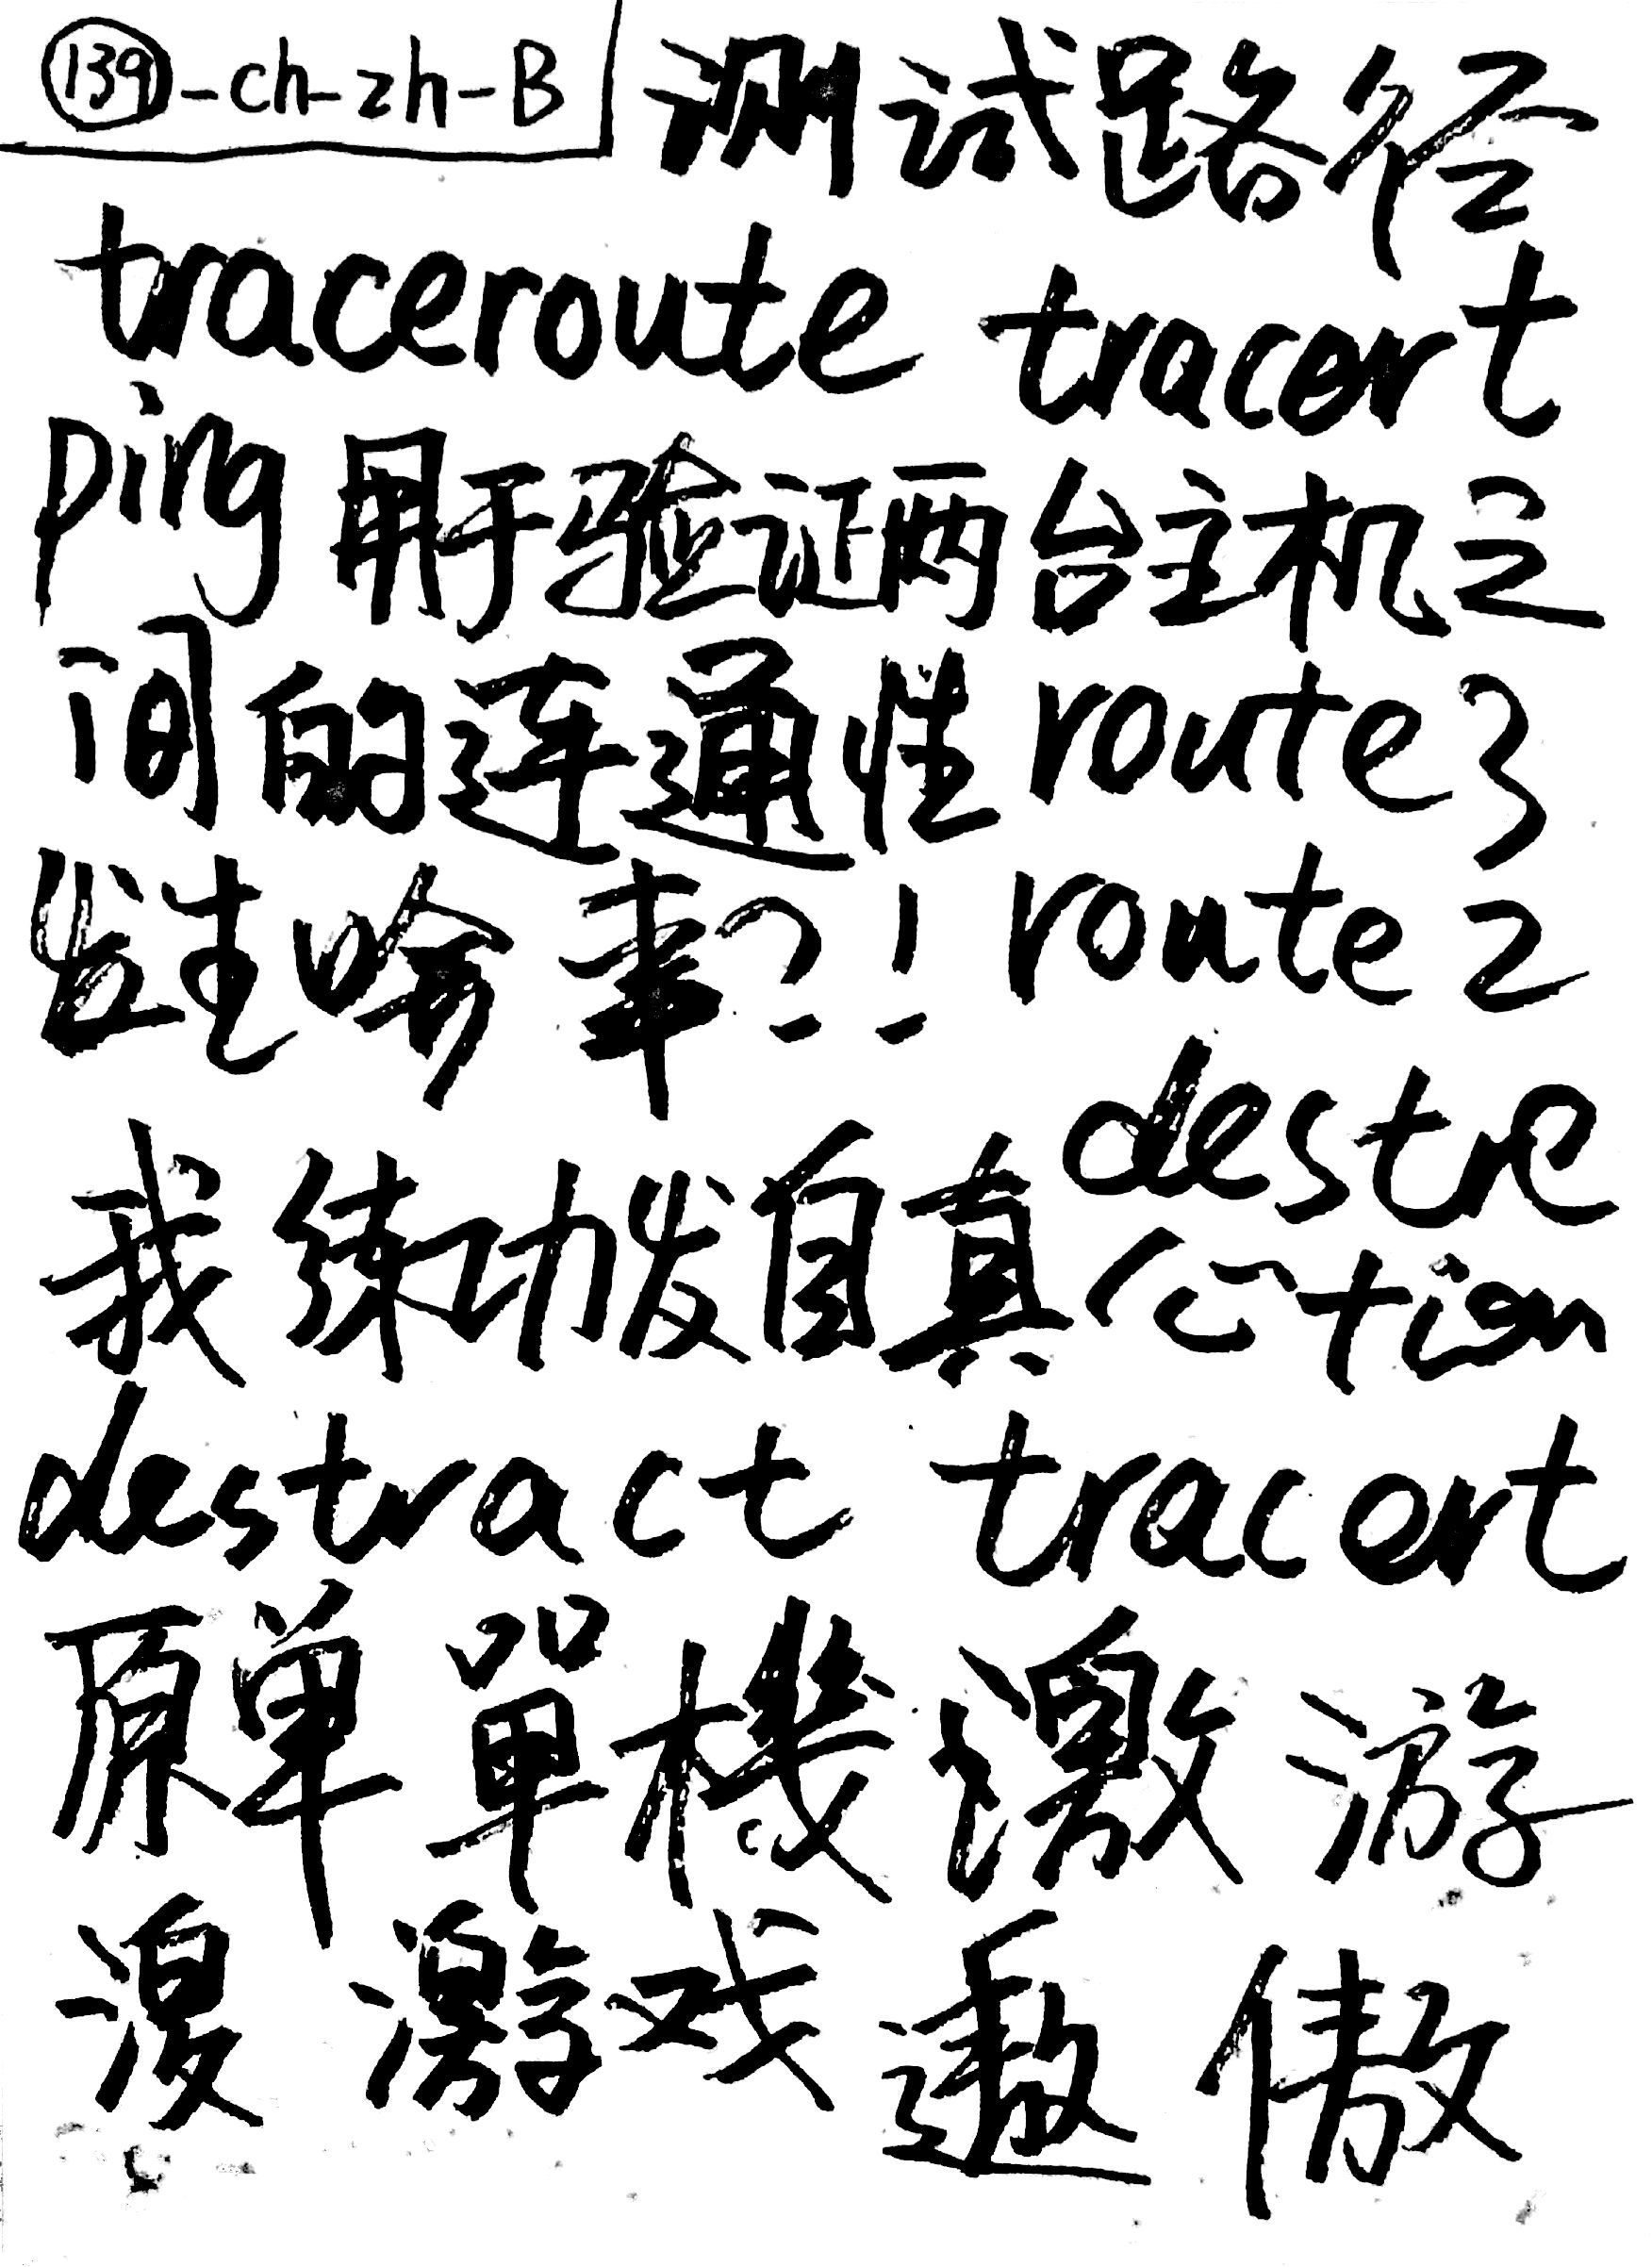 139-ch-zh-B 测试路径
traceroute tracert
ping 用于验证两台主机之
间的连通性 route3
发生啥事?! route2
destre
我练功发自真 ction
destract tracert
原单 單機 激 游
澓 激 游戏 遨 傲